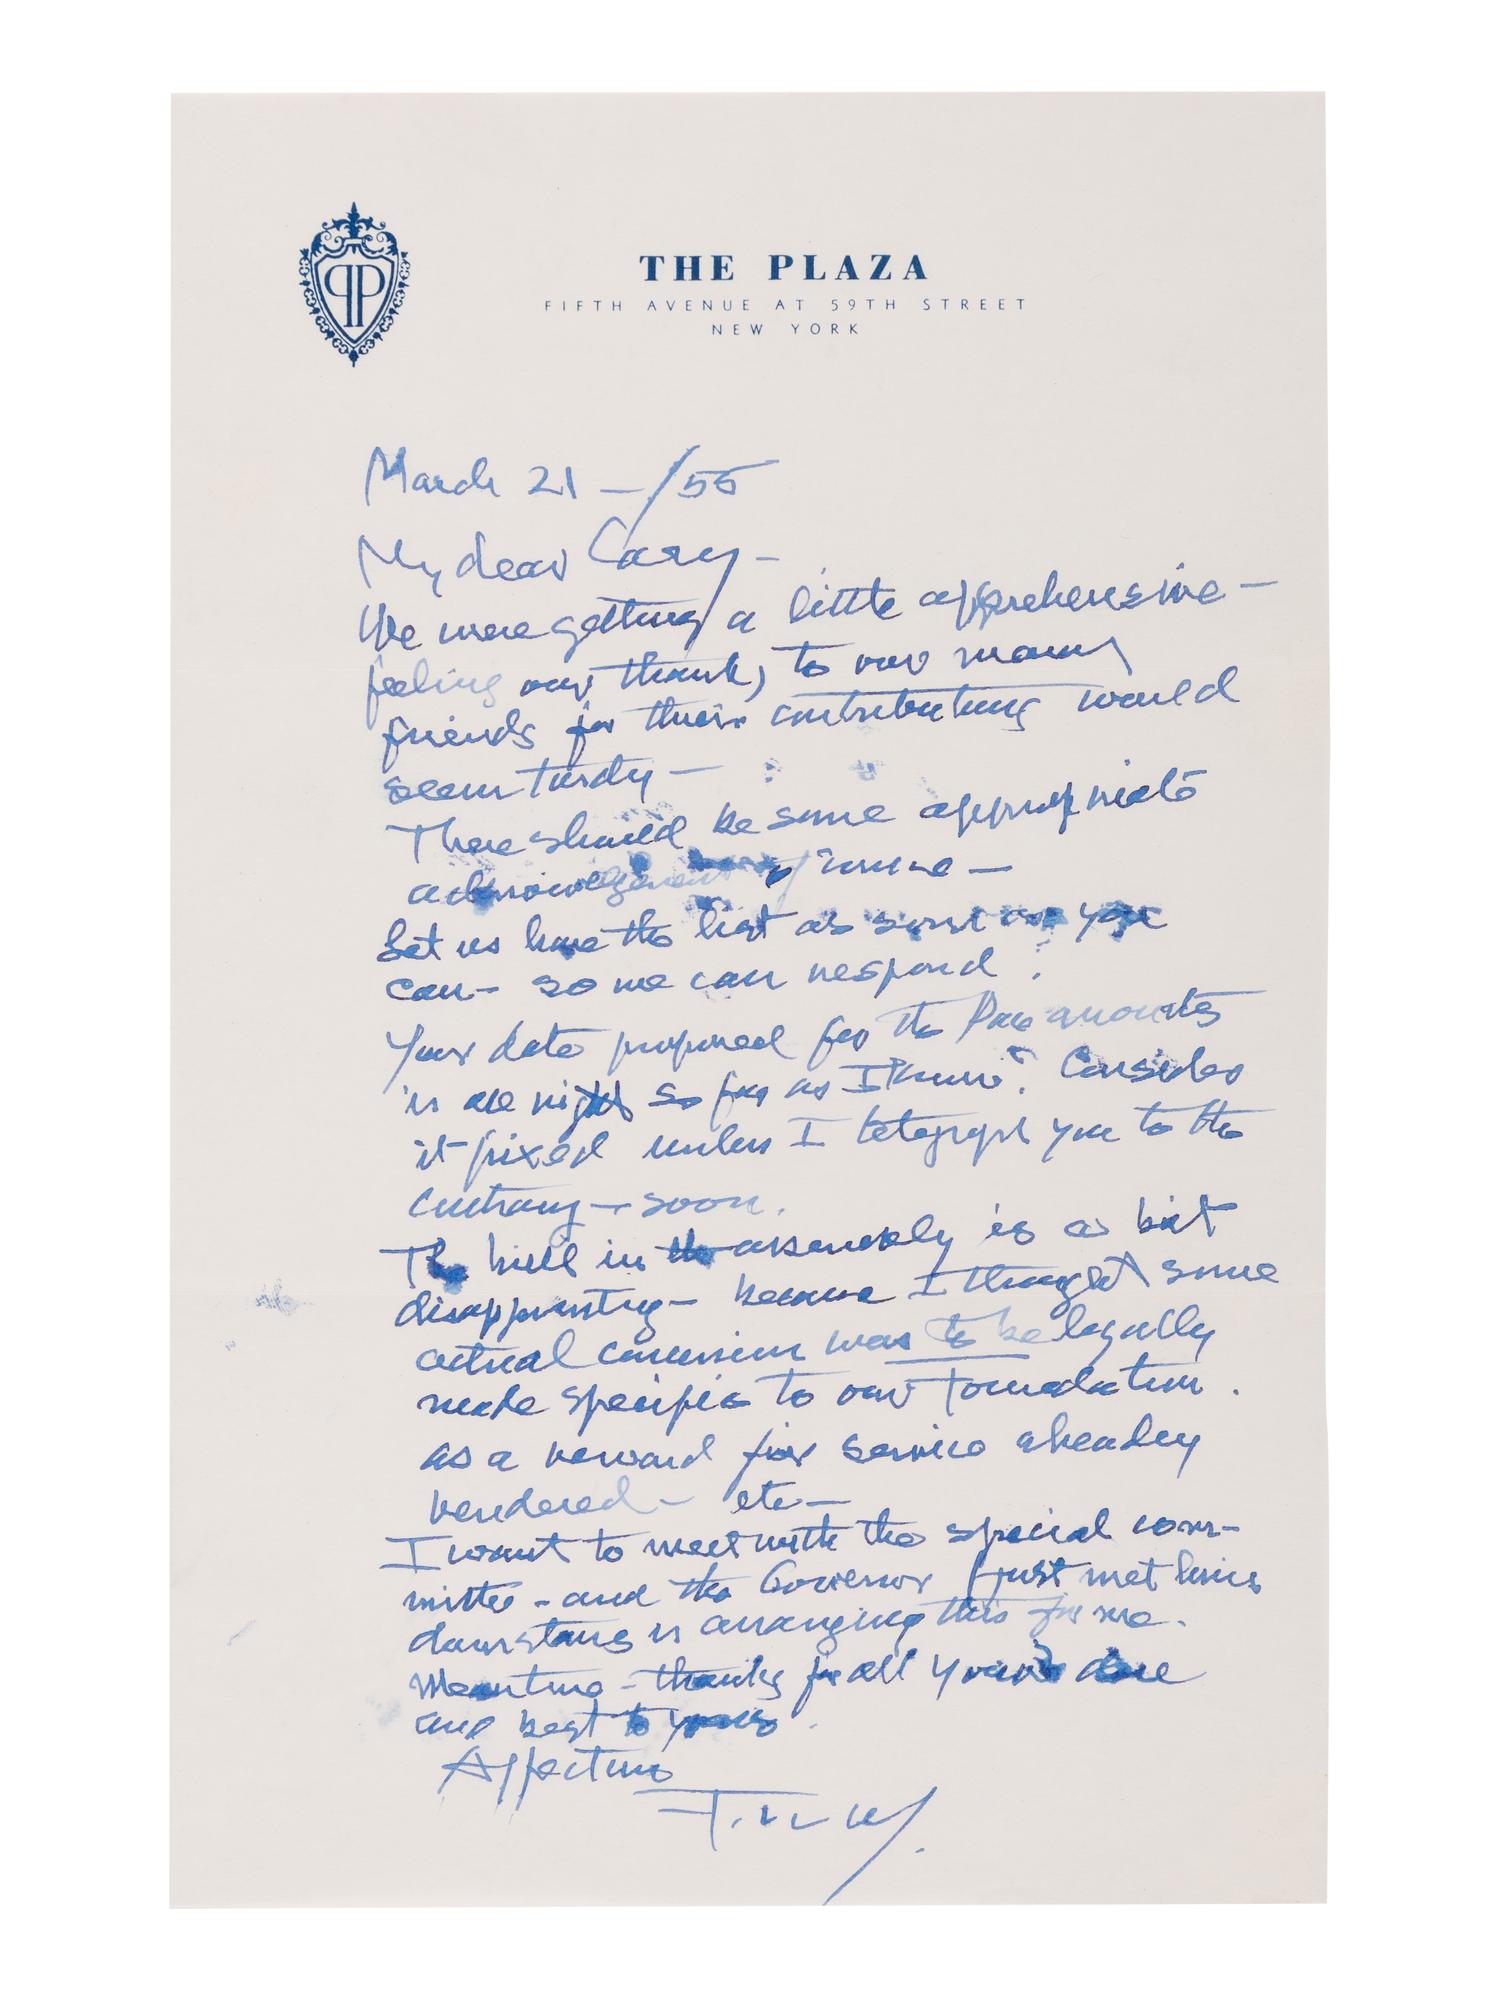 PP
THE PLAZA
FIFTH AVENUE AT 59TH STREET
NEW YORK
March 21 – /55
My dear Cary –
We were getting a little apprehensive –
feeling our thanks to our many
friends for their contributing would
seem tardy –
There should be some appropriate
acknowledgement of mine –
Let us have the list as soon as you
can – so we can respond.
Your date proposed for the
is all right so far as I "know". Consider
it fixed unless I telegraph you to the
contrary – soon.
The bill in the assembly is a bit
disappointing – because I thought some
actual concession was to be legally
made specific to our Foundation.
as a reward for service already
rendered – etc –
I want to meet with the special com-
mittee – and the Governor (just met him
downstairs is arranging this for me.
Meantime – thanks for all you've done
and best to yours.
Affection
F.LL.W.